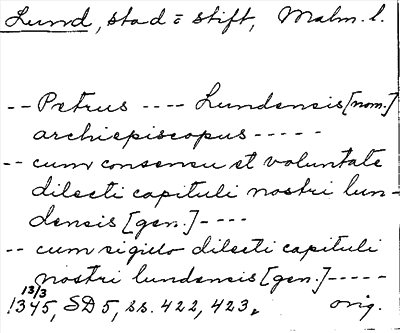 Lund, stad o stift, Malm. l.
-- Petrus ---- Lundensis [nom.]
archiepiscopus -----
-- cum consensu et voluntate
dilecti capituli nostri lun-
densis [gen.] ----
-- cum sigillo dilecti capituli
nostri lundensis [gen.] -----
13/3
1345, SD 5, ss. 422, 423, orig.